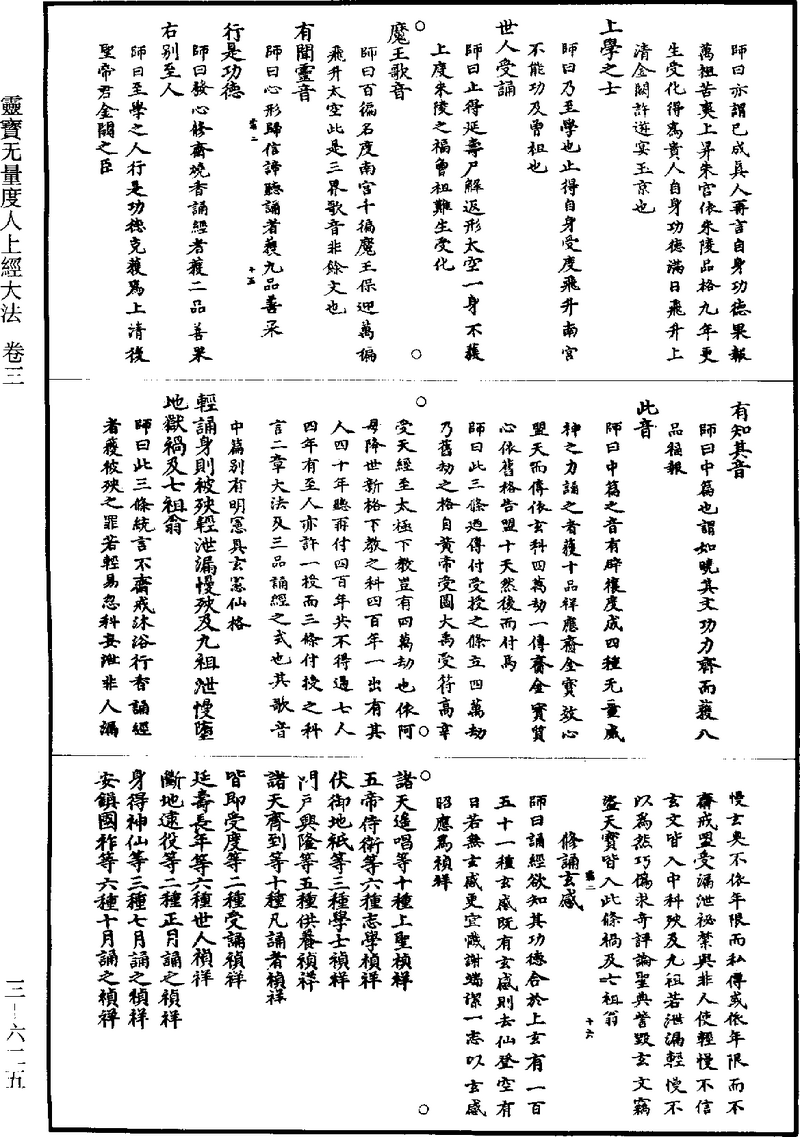 師曰亦謂已成真人再言自身功德果報
萬祖苦爽上昇朱宮依朱陵品格九年更
生受化得為貴人自身功德滿日飛升上
清金闕許遊宴玉京也
上學之士
師曰乃至學也止得自身受度飛升南宮
不能功及曾祖也
世人受誦
師曰止得延壽尸解返形太空一身不獲
上度朱陵之福曾祖難生受化
魔王歌音
師曰百徧名度南宮千徧魔王保迎萬徧
飛升太空此是三界歌音非餘文也
有聞靈音
師曰心形歸信諦聽誦者獲九品善果
第二 十五
行是功德
師曰發心修齋燒香誦經者獲二品善果
右別至人
師曰至學之人行是功德克獲為上清後
聖帝君金闕之臣
有知其音
師曰中篇也謂如曉其文功力齊而獲八
品福報
此音
師曰中篇之音有辟穰度成四種无量威
神之力誦之者獲十品祥應齋金寶效心
盟天而傳依玄科四萬劫一傳齋金寶質
心依舊格告盟十天然後而付焉
師曰此三條迺傳付受授之條立四萬劫
乃舊劫之格自黃帝受圖大禹受符高辛
受天經至太極下教豈有四萬劫也依阿
母降世新格下教之科四百年一出有其
人四十年聽再付四百年共不得過七人
四年有至人亦許一授而三條付授之科
言二章大法及三品誦經之式也其歌音
中篇別有明憲具玄憲仙格
輕誦身則被殃輕泄漏慢殃及九祖泄慢墮
地獄禍及七祖翁
師曰此三條統言不齋戒沐浴行香誦經
者獲被殃之罪若輕易忽科妄泄非人漏
慢玄奧不依年限而私傳或依年限而不
齋戒盟受漏泄祕禁與非人使輕慢不信
玄文皆入中科殃及九祖若泄漏輕慢不
以為然巧偽求奇評論聖典訾毀玄文竊
盜天寶皆入此條禍及七祖翁
第二 十六
修誦玄感
師曰誦經欲知其功德合於上玄有一百
五十一種玄感既有玄感則去仙登空有
日若無玄感更宜懺謝端潔一志以玄感
昭應為禎祥
諸天遙唱等十種上聖禎祥
五帝侍衛等六種志學禎祥
伏御地祇等三種學士禎祥
門戶興隆等五種供養禎祥
諸天齊到等十種凡誦者禎祥
皆即受度等二種受誦禎祥
延壽長年等六種世人禎祥
斷地遠役等二種正月誦之禎祥
身得神仙等三種七月誦之禎祥
安鎮國祚等六種十月誦之禎祥
靈寶无量度人上經大法 卷三
三—六二五